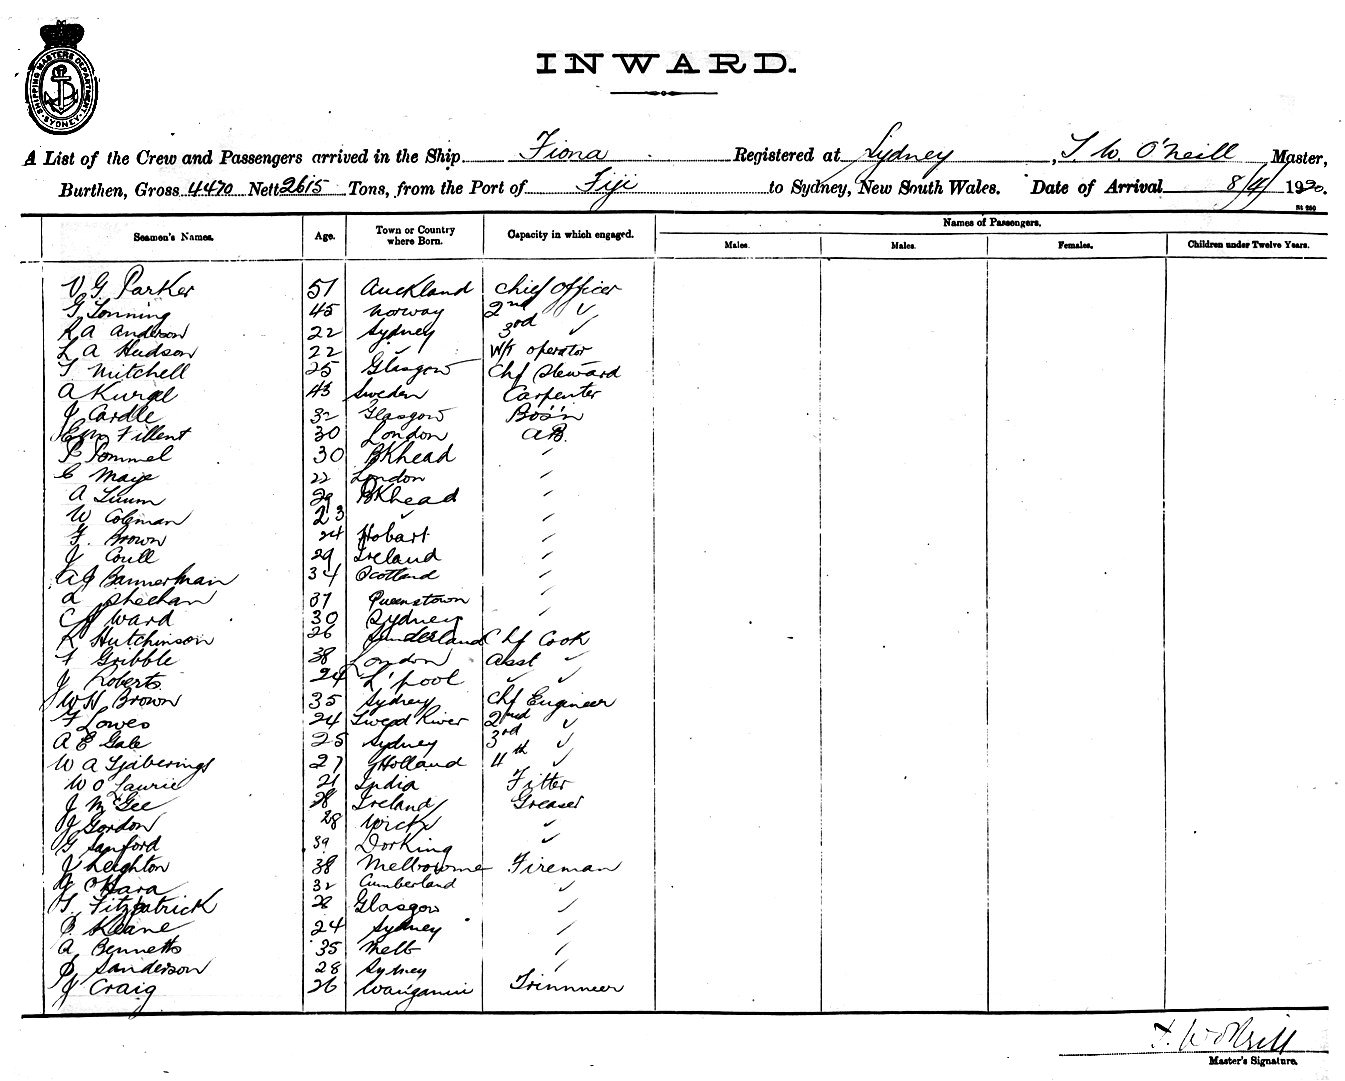 SHIPPING MASTERS DEPARTMENT SYDNEY
INWARD.
A List of the Crew and Passengers arrived in the Ship Fiona Registered at Sydney, T W. O'Neill Master,
Burthen, Gross 4470 Nett 2615 Tons, from the Port of Fiji to Sydney, New South Wales. Date of Arrival 8/4/1920.
Names of Passengers.
Seamen's Names. Age. Town or Country where Born. Capacity in which engaged. Males. Males. Females. Children under Twelve Years.
V G Parker 51 Auckland Chief Officer
G Tonning 45 Norway 2nd ✓
R A Anderson 22 Sydney 3rd ✓
L A Hudson 22 ✓ W/T operator
T Mitchell 25 Glasgow Chf Steward
A 43 Sweden Carpenter
J Cardle 32 Glasgow Bos'n
Fillent 30 London AB.
P Pommel 30 BKhead ✓
C Maye 22 London ✓
A 29 BKhead ✓
W Coleman 23 ✓ ✓
F. Brown 24 Hobart ✓
J Coull 29 Ireland ✓
A J Bannerman 34 Scotland ✓
L Sheehan 37 Queenstown ✓
C J Ward 30 Sydney ✓
R Hutchinson 26 Sunderland Chf Cook
F Gribble 38 London Asst ✓
J Roberts 24 L'pool ✓ ✓
J W H Brown 35 Sydney Chf Engineer
F Lowes 24 Tweed River 2nd ✓
A E Gale 25 Sydney 3rd ✓
W A Tjaberings 27 Holland 4th ✓
W O Laurie 21 India Fitter
J McGee 28 Ireland Greaser
J Gordon 28 Wick ✓
G Sanford 39 Dorking ✓
J Leighton 38 Melbourne Fireman
O'Hara 32 Cumberland ✓
T. Fitzpatrick 28 Glasgow ✓
P. Keane 24 Sydney ✓
A. Bennetts 35 Melb ✓
Sanderson 28 Sydney ✓
J Craig 26 Wanganui Trimmer
T. W O'Neill
Master's Signature.